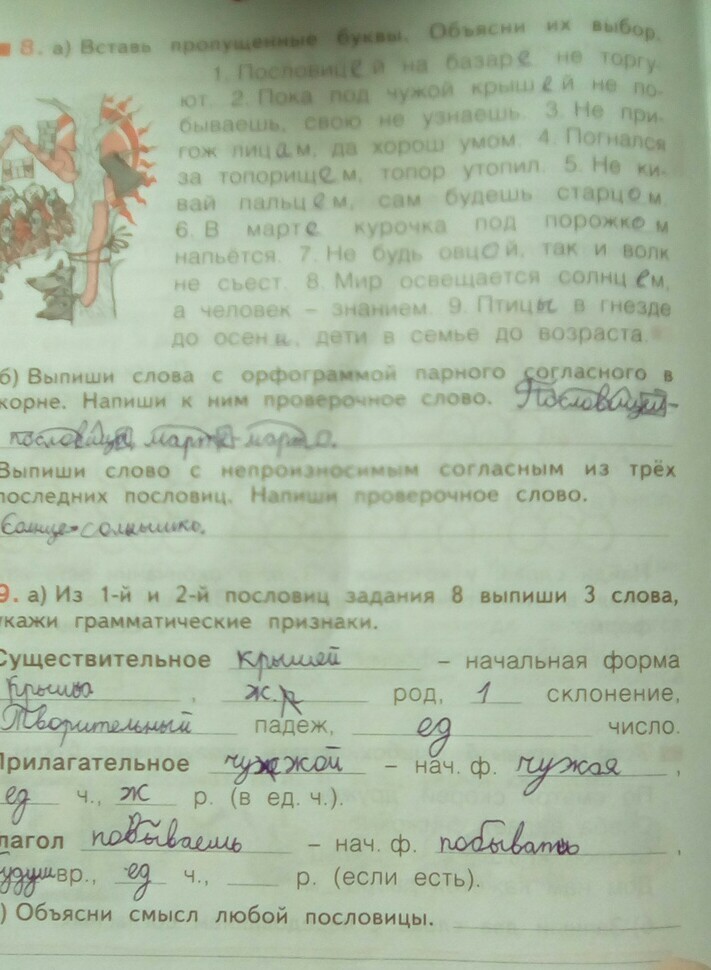 8. а) Вставь пропущенные буквы. Объясни их выбор.
1. Пословицей на базаре не торгу-
ют. 2. Пока под чужой крышей не по-
бываешь, свою не узнаешь. 3. Не при-
гож лицам, да хорош умом. 4. Погнался
за топорищем, топор утопил. 5. Не ки-
вай пальцем, сам будешь старцем.
6. В марте курочка под порожком
напьётся. 7. Не будь овцой, так и волк
не съест. 8. Мир освещается солнцем,
а человек – знанием. 9. Птицы в гнезде
до осени, дети в семье до возраста.
б) Выпиши слова с орфограммой парного согласного в
корне. Напиши к ним проверочное слово. Пословицей-
пословица, марте-марта.
Выпиши слово с непроизносимым согласным из трёх
последних пословиц. Напиши проверочное слово.
Солнце-солнышко.
9. а) Из 1-й и 2-й пословиц задания 8 выпиши 3 слова,
укажи грамматические признаки.
Существительное крышей – начальная форма
крыша, ж.р род, 1 склонение,
Творительный падеж, ед число.
Прилагательное чужой – нач. ф. чужая,
ед ч., ж р. (в ед. ч.).
лагол побываешь – нач. ф. побывать,
будущ вр., ед ч., р. (если есть).
) Объясни смысл любой пословицы.